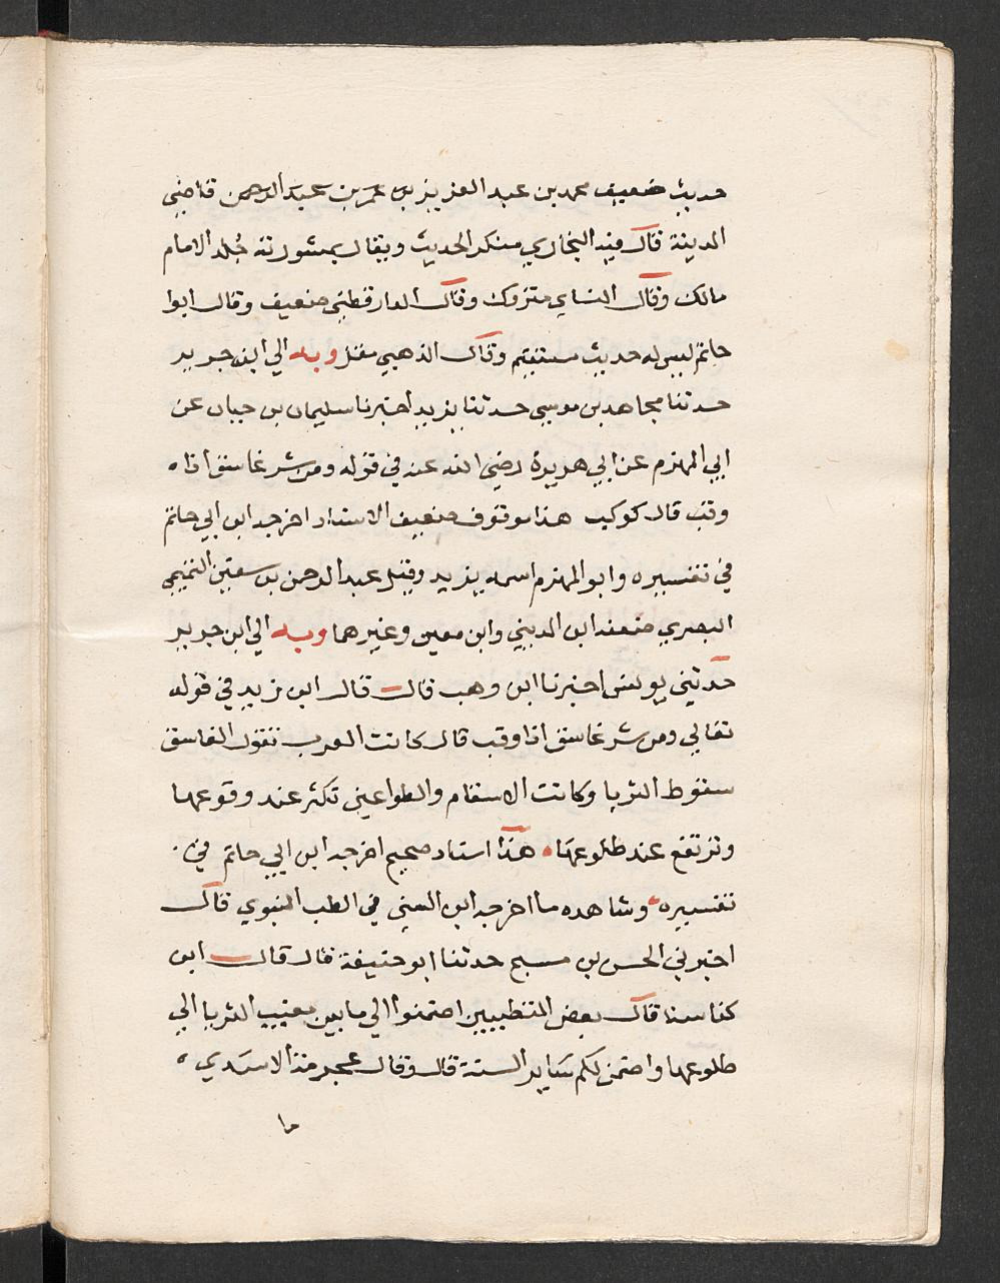 حديث ضعيف محمد بن عبد العزيز بن عمر بن عبد الرحمن قاضي
المدينة قال فيه البخاري منكر الحديث ويقال بمشورته جُلد الامام
مالك وقال النساي متروك وقال الدارقطني ضعيف وقال ابوا
حاتم ليس له حديث مستقيم وقال الذهبي مقل وبه الي ابن جرير
حدثنا مجاهد بن موسي حدثنا يزيد اخبرنا سليمان بن حبان عن
ابي المهزم عن ابي هريرة رضي الله عنه في قوله ومن شر غاسق اذا ه
وقب قال كوكب هذا موقوف ضعيف الاسناد اخرجه ابن ابي حاتم
في تفسيره وابو المهزم اسمه يزيد وقيل عبد الرحمن بن سفين التميمي
البصري ضعفه ابن المديني وابن معين وغيرهما وبه الي ابن جرير
حدثني يونس اخبرنا ابن وهب قال قال ابن زيد في قوله
تعالي ومن شر غاسق اذا وقب قال كانت العرب تقول الغاسق
سقوط الثريا وكانت الاسقام والطواعين تكثر عند وقوعها
وترتفع عند طلوعها ه هذا اسناد صحيح اخرجه ابن ابي حاتم في
تفسيره وشاهده ما اخرجه ابن السني في الطب النبوي قال
اخبرني الحسن بن مسبح حدثنا ابو حنيفة قال قال ابن
كناسنا قال بعض المتطببين اضمنوا الي ما بين مغيب الثريا الي
طلوعها واضمن لكم ساير السنة قال وقال عجرمة الاسدي ه
ما